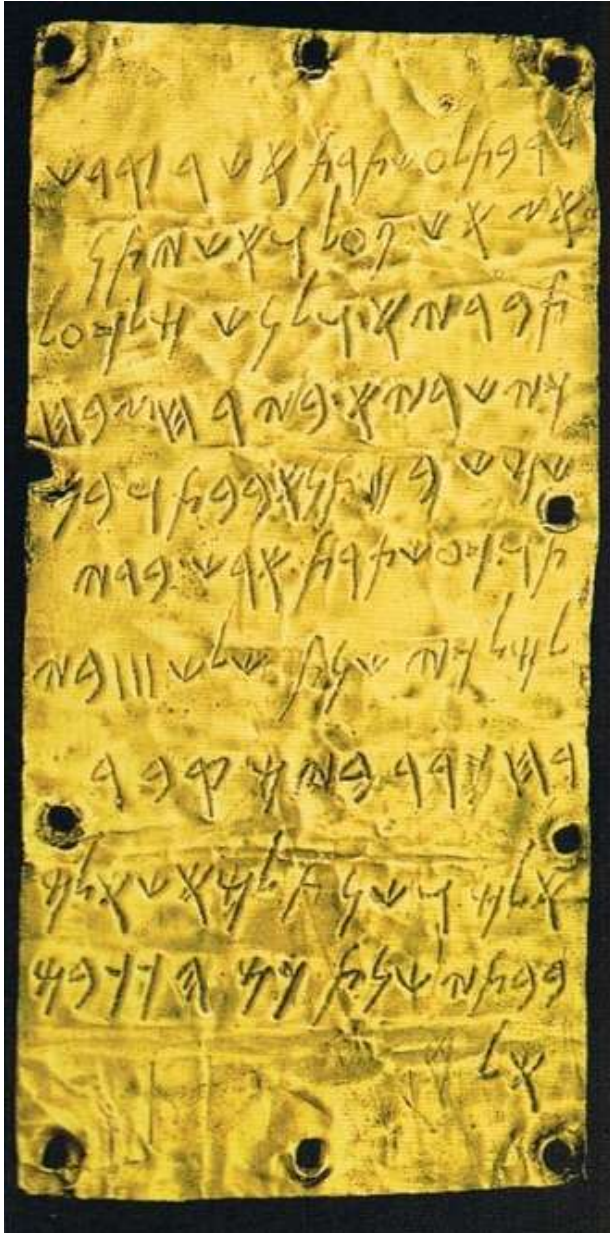 𐤋𐤓𐤁𐤕𐤋𐤏𐤔𐤕𐤓𐤕𐤀𐤔𐤓𐤒𐤃𐤔
𐤀𐤆𐤀𐤔𐤐𐤏𐤋𐤅𐤀𐤔𐤉𐤕𐤍
𐤕𐤁𐤓𐤉𐤀.𐤅𐤋𐤍𐤔𐤌𐤋𐤊𐤏𐤋
𐤊𐤉𐤔𐤓𐤉𐤀.𐤁𐤉𐤓𐤇.𐤆𐤁𐤇
𐤔𐤌𐤔𐤁𐤌𐤕𐤍𐤀𐤁𐤁𐤕𐤅𐤁𐤍
𐤕𐤅.𐤊𐤏𐤔𐤕𐤓𐤕.𐤀𐤓𐤔.𐤁𐤃𐤉
𐤋𐤌𐤋𐤊𐤉𐤔𐤍𐤕𐤔𐤋𐤔 III 𐤁𐤉
𐤓𐤇𐤊𐤓𐤓𐤁𐤉𐤌𐤒𐤁𐤓
𐤀𐤋𐤌𐤅𐤔𐤍𐤕𐤋𐤌𐤀𐤔𐤀𐤋𐤌
𐤁𐤁𐤕𐤉𐤔𐤍𐤕𐤊𐤌𐤄𐤊𐤊𐤁𐤌
𐤀𐤋